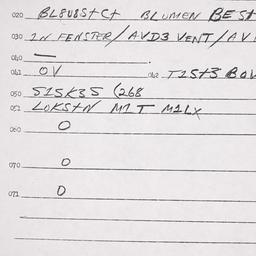 020 BL8U8S+C+ BLUMEN BEST
030 IN FENSTER/AVD3 VENT/AV
040 —
041 OV 042 T2S+3 BOV
050 S15K35 (268
052 LOKS+N M1T M1LX
060 O
070 O
071 O